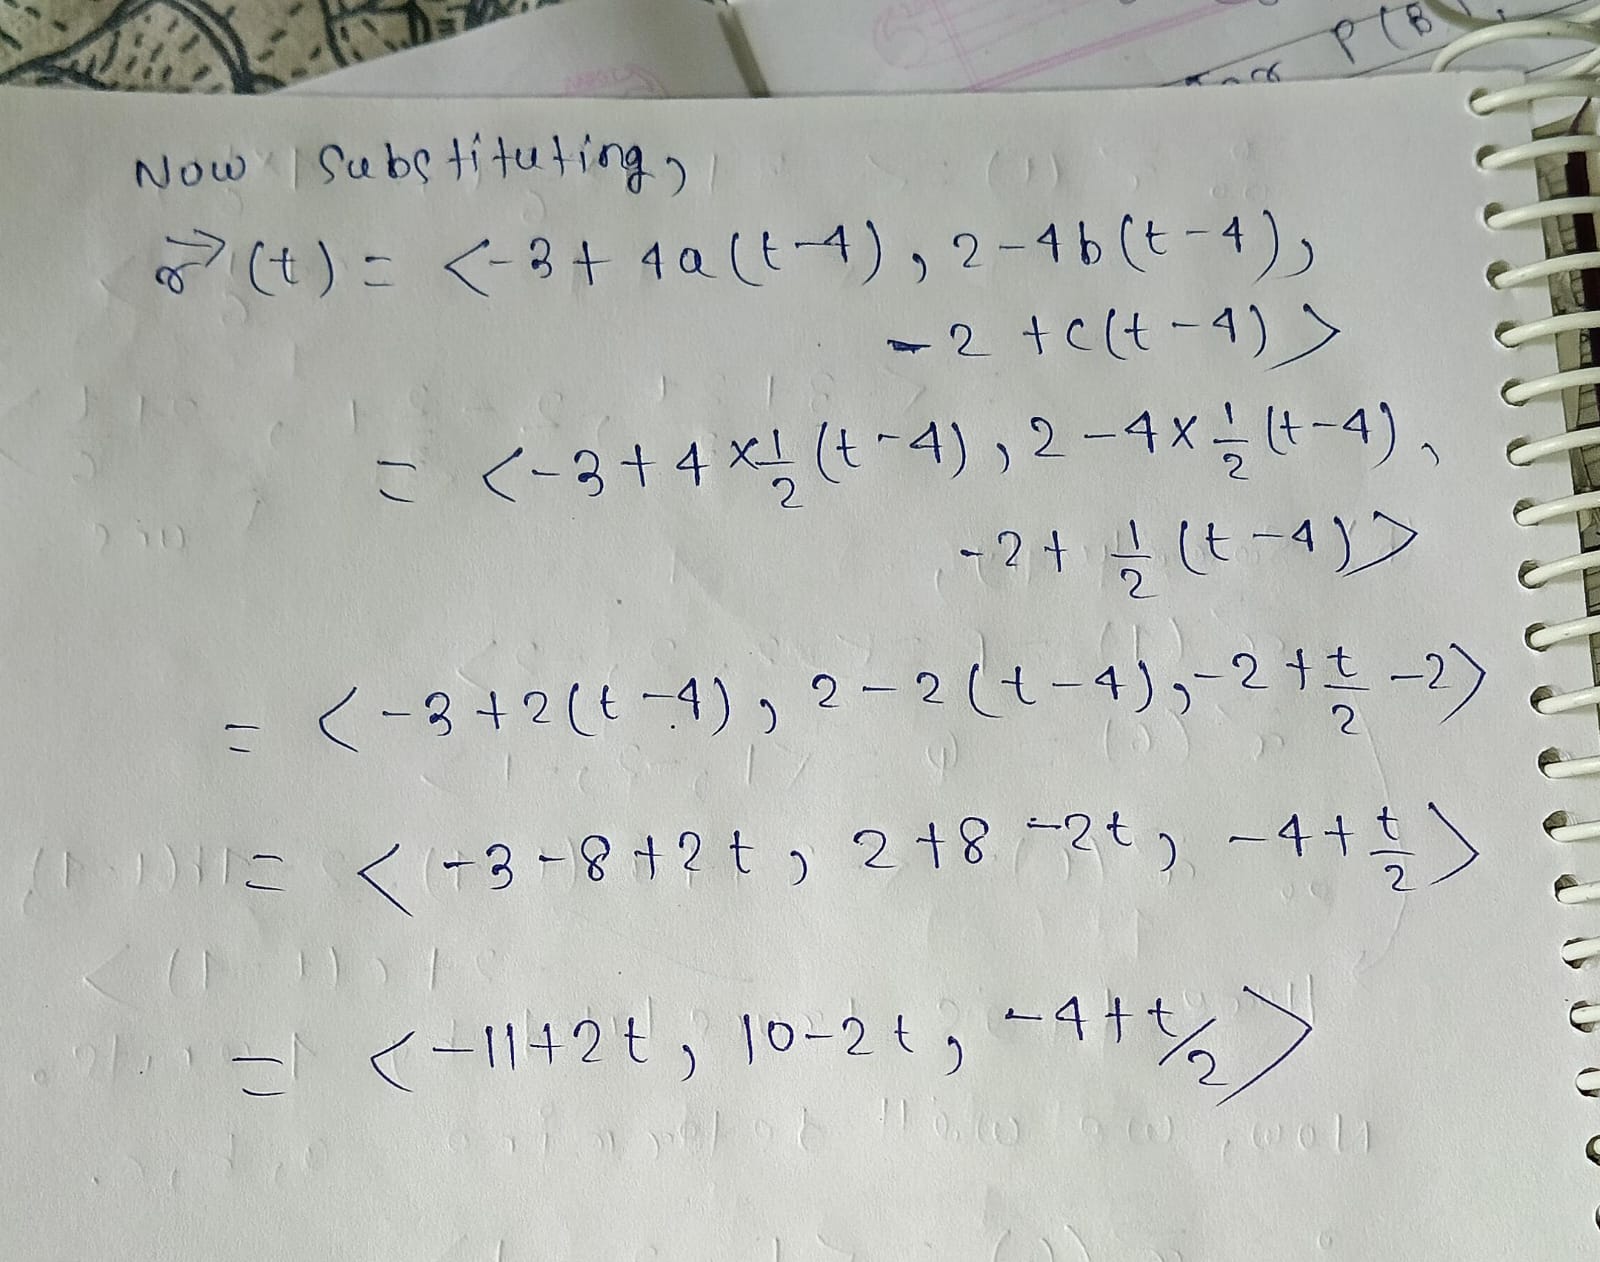 P(B)
Now substituting,
r⃗(t) = <-3 + 4a(t-4), 2-4b(t-4),
-2 + c(t-4)>
= <-3 + 4 × 1/2 (t-4), 2-4 × 1/2 (t-4),
-2 + 1/2 (t-4)>
= <-3 + 2(t-4), 2-2(t-4), -2 + t/2 -2>
= <-3-8+2t, 2+8-2t, -4 + t/2>
= <-11+2t, 10-2t, -4+t/2>